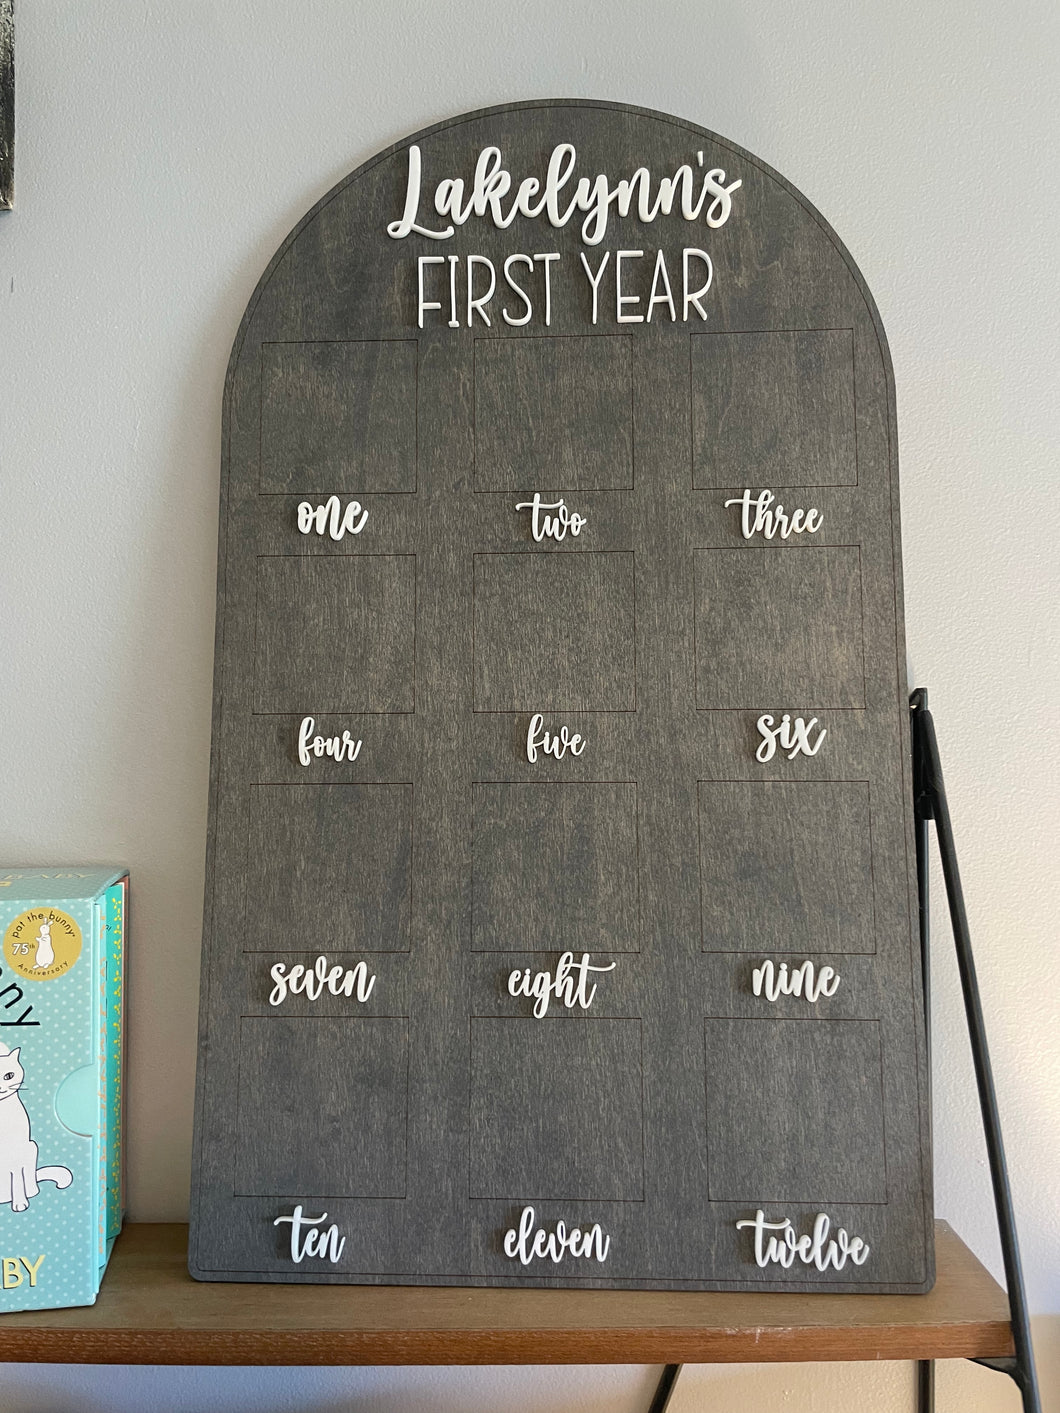 Lakelynn's
FIRST YEAR
one two three
four five six
seven eight nine
ten eleven twelve
BABY
pat the bunny
75th
Anniversary
ny
BY